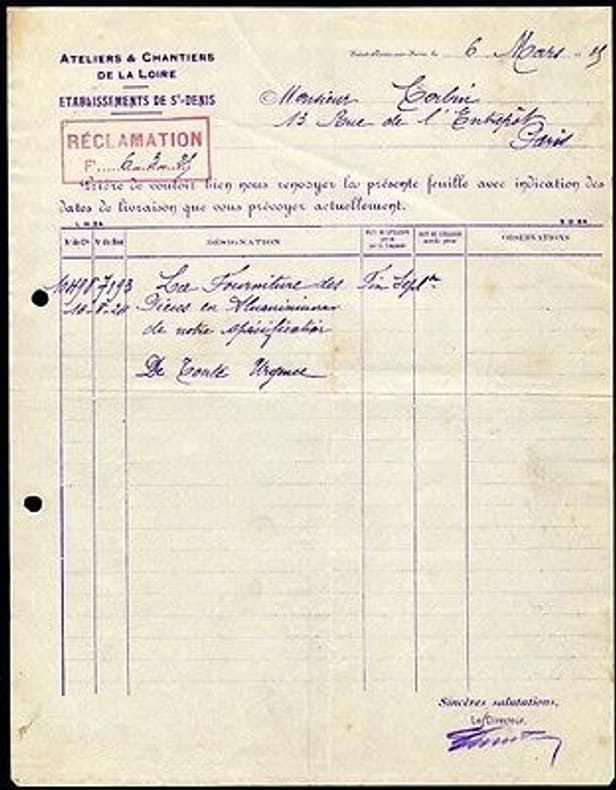 ATELIERS & CHANTIERS
DE LA LOIRE
ETABLISSEMENTS DE St-DENIS
6 Mars
Monsieur Corbin
13 Rue de l'Entrepôt
Paris
RÉCLAMATION
Prière de vouloir bien nous renvoyer la présente feuille avec indication des
dates de livraison que vous prévoyez actuellement.
DÉSIGNATION
OBSERVATIONS
7193 La Fourniture des Fin Sept
10-8-24 Pièces en Aluminium
de notre spécification
De Toute Urgence
Sincères salutations,
Le Directeur,